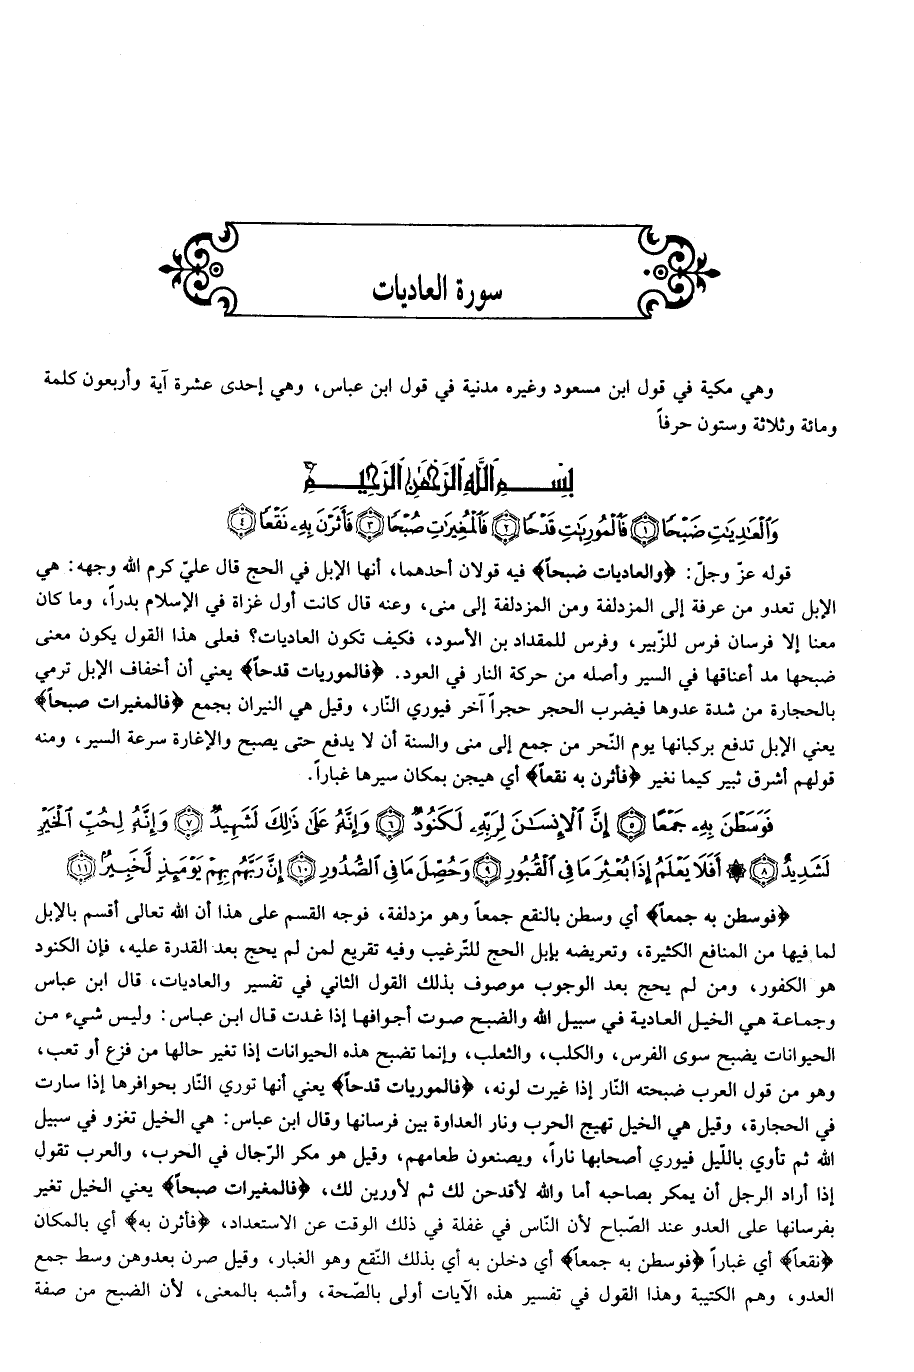 سورة العاديات
وهي مكية في قول ابن مسعود وغيره مدنية في قول ابن عباس، وهي إحدى عشرة آية وأربعون كلمة
ومائة وثلاثة وستون حرفاً
بِسْمِ اللَّهِ الرَّحْمَٰنِ الرَّحِيمِ
وَٱلْعَٰدِيَٰتِ ضَبْحًا ﴿١﴾ فَٱلْمُورِيَٰتِ قَدْحًا ﴿٢﴾ فَٱلْمُغِيرَٰتِ صُبْحًا ﴿٣﴾ فَأَثَرْنَ بِهِۦ نَقْعًا ﴿٤﴾
قوله عزّ وجلّ: ﴿والعاديات ضبحاً﴾ فيه قولان أحدهما، أنها الإبل في الحج قال عليّ كرم الله وجهه: هي
الإبل تعدو من عرفة إلى المزدلفة ومن المزدلفة إلى منى، وعنه قال كانت أول غزاة في الإسلام بدراً، وما كان
معنا إلا فرسان فرس للزّبير، وفرس للمقداد بن الأسود، فكيف تكون العاديات؟ فعلى هذا القول يكون معنى
ضبحها مد أعناقها في السير وأصله من حركة النار في العود. ﴿فالموريات قدحاً﴾ يعني أن أخفاف الإبل ترمي
بالحجارة من شدة عدوها فيضرب الحجر حجراً آخر فيوري النّار، وقيل هي النيران بجمع ﴿فالمغيرات صبحاً﴾
يعني الإبل تدفع بركبانها يوم النّحر من جمع إلى منى والسنة أن لا يدفع حتى يصبح والإغارة سرعة السير، ومنه
قولهم أشرق ثبير كيما نغير ﴿فأثرن به نقعاً﴾ أي هيجن بمكان سيرها غباراً.
فَوَسَطْنَ بِهِۦ جَمْعًا ﴿٥﴾ إِنَّ ٱلْإِنسَٰنَ لِرَبِّهِۦ لَكَنُودٌ ﴿٦﴾ وَإِنَّهُۥ عَلَىٰ ذَٰلِكَ لَشَهِيدٌ ﴿٧﴾ وَإِنَّهُۥ لِحُبِّ ٱلْخَيْرِ
لَشَدِيدٌ ﴿٨﴾ ۞ أَفَلَا يَعْلَمُ إِذَا بُعْثِرَ مَا فِى ٱلْقُبُورِ ﴿٩﴾ وَحُصِّلَ مَا فِى ٱلصُّدُورِ ﴿١٠﴾ إِنَّ رَبَّهُم بِهِمْ يَوْمَئِذٍ لَّخَبِيرٌۢ ﴿١١﴾
﴿فوسطن به جمعاً﴾ أي وسطن بالنقع جمعاً وهو مزدلفة، فوجه القسم على هذا أن الله تعالى أقسم بالإبل
لما فيها من المنافع الكثيرة، وتعريضه بإبل الحج للتّرغيب وفيه تقريع لمن لم يحج بعد القدرة عليه، فإن الكنود
هو الكفور، ومن لم يحج بعد الوجوب موصوف بذلك القول الثاني في تفسير والعاديات، قال ابن عباس
وجماعة هي الخيل العادية في سبيل الله والضبح صوت أجوافها إذا غدت قال ابن عباس: وليس شيء من
الحيوانات يضبح سوى الفرس، والكلب، والثعلب، وإنما تضبح هذه الحيوانات إذا تغير حالها من فزع أو تعب،
وهو من قول العرب ضبحته النّار إذا غيرت لونه، ﴿فالموريات قدحاً﴾ يعني أنها توري النّار بحوافرها إذا سارت
في الحجارة، وقيل هي الخيل تهيج الحرب ونار العداوة بين فرسانها وقال ابن عباس: هي الخيل تغزو في سبيل
الله ثم تأوي بالليل فيوري أصحابها ناراً، ويصنعون طعامهم، وقيل هو مكر الرّجال في الحرب، والعرب تقول
إذا أراد الرجل أن يمكر بصاحبه أما والله لأقدحن لك ثم لأورين لك، ﴿فالمغيرات صبحاً﴾ يعني الخيل تغير
بفرسانها على العدو عند الصّباح لأن النّاس في غفلة في ذلك الوقت عن الاستعداد، ﴿فأثرن به﴾ أي بالمكان
﴿نقعاً﴾ أي غباراً ﴿فوسطن به جمعاً﴾ أي دخلن به أي بذلك النّقع وهو الغبار، وقيل صرن بعدوهن وسط جمع
العدو، وهم الكتيبة وهذا القول في تفسير هذه الآيات أولى بالصّحة، وأشبه بالمعنى، لأن الضبح من صفة